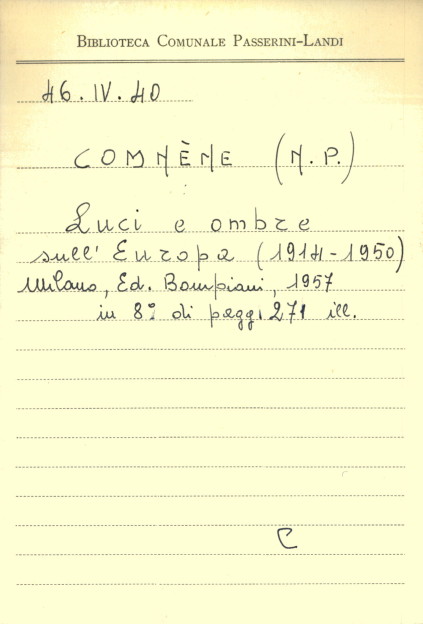 BIBLIOTECA COMUNALE PASSERINI-LANDI
46.IV.40
COMNÈNE (N.P.)
Luci e ombre
sull'Europa (1914-1950)
Milano, Ed. Bompiani, 1957
in 8° di pagg. 271 ill.
C